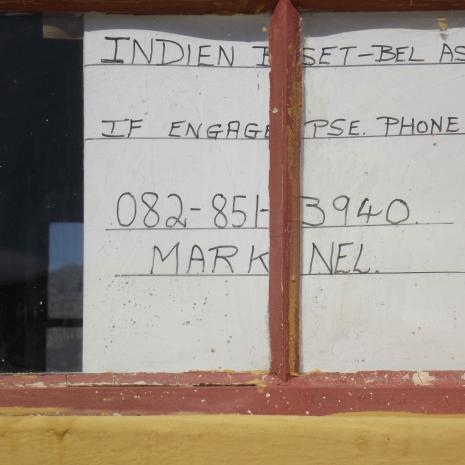 INDIEN BESET-BEL AS
IF ENGAGE PSE. PHONE
082-851-3940
MARK NEL.